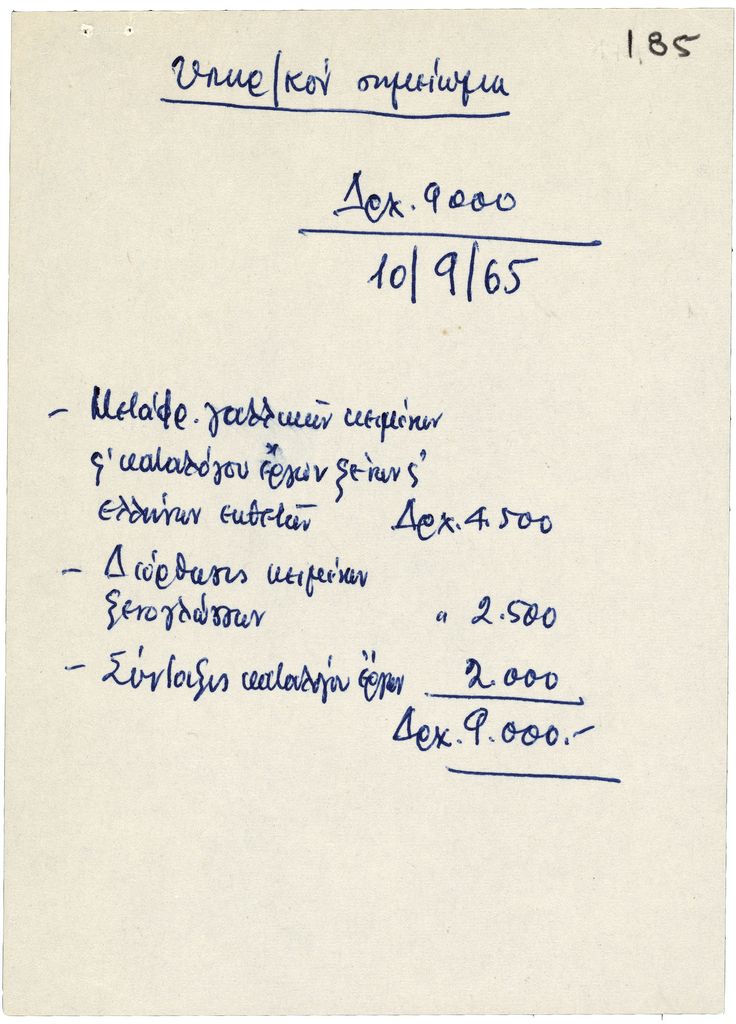 185
Υπηρ/κόν σημείωμα
Δρχ. 9000
10/9/65
- Μετάφρ. γαλλικών κειμένων
ς' καταλόγου έργων ξένων ς'
ελλήνων εκθετών Δρχ. 4.500
- Διόρθωσις κειμένων
ξενογλώσσων " 2.500
- Σύνταξις καταλόγου έργων 2.000
Δρχ. 9.000.-